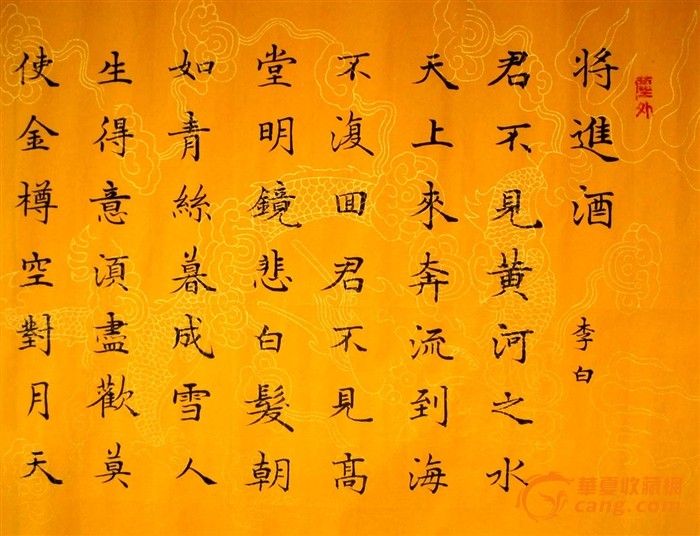 將進酒 李白
君不見黄河之水
天上來奔流到海
不復囬君不見髙
堂明鏡悲白髮朝
如青絲暮成雪人
生得意須盡歡莫
使金樽空對月天
華夏收藏網
cang.com